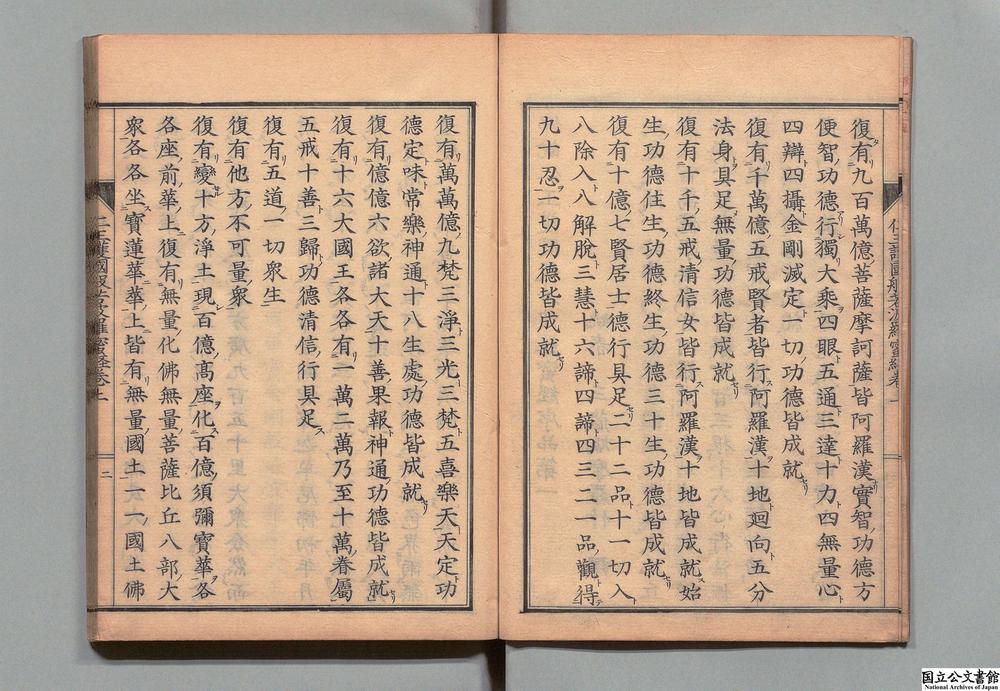 復有九百萬億菩薩摩訶薩皆阿羅漢實智功德方
便智功德行獨大乘四眼五通三達十力四無量心
四辯四攝金剛滅定一切功德皆成就
復有千萬億五戒賢者皆行阿羅漢十地迴向五分
法身具足無量功德皆成就
復有十千五戒清信女皆行阿羅漢十地皆成就始
生功德住生功德終生功德三十生功德皆成就
復有十億七賢居士德行具足二十二品十一切入
八除入八解脫三慧十六諦四諦四三二一品觀得
九十忍一切功德皆成就
復有萬萬億九梵三淨三光三梵五喜樂天天定功
德定味常樂神通十八生處功德皆成就
復有億億六欲諸天十善果報神通功德皆成就
復有十六大國王各各有一萬二萬乃至十萬眷屬
五戒十善三歸功德清信行具足
復有五道一切衆生
復有他方不可量衆
復有變十方淨土現百億髙座化百億須彌寶華各
各座前華上復有無量化佛無量菩薩比丘八部大
衆各各坐寶蓮華華上皆有無量國土一一國土佛
仁王護國般若波羅蜜經卷上
二
国立公文書館
National Archives of Japan